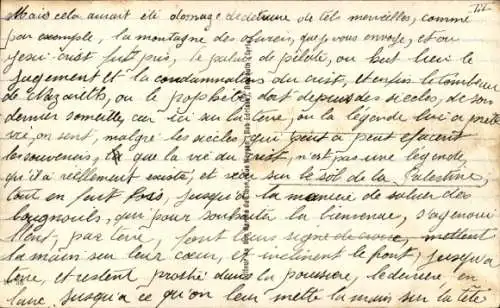 Mais cela aurait été domage de détruire de tels merveilles, comme
par exemple, la montagne des oliviers, que je vous envoye, et ou
Jésus-crist fut pris, le palais de pilate, ou eut lieu le
jugement et la condamnation du crist, et enfin le tombeau
de Nazareth, ou le prophète dort depuis des siècles, de son
dernier someille, car ici sur la terre, ou la légende lui a prêté
vie, on sent, malgré les siècles qui peut a peut éfacent
les souvenirs, que la vie du crist, n'est pas une légende,
qu'il a réellement existé, et vécu sur le sol de la Palestine,
tout en fait fois, jusqu'a la manière de saluer des
bougnouls, qui pour souhaiter la bienvenue, s'agenouil
lent, par terre, font leurs signe de croix, mettent
la main sur leur cœur, et inclinent le front, jusqu'a
terre, et restent prostré dans la poussière, le derrière en
l'air. Jusqu'a ce qu'on leur mette la main sur la tête